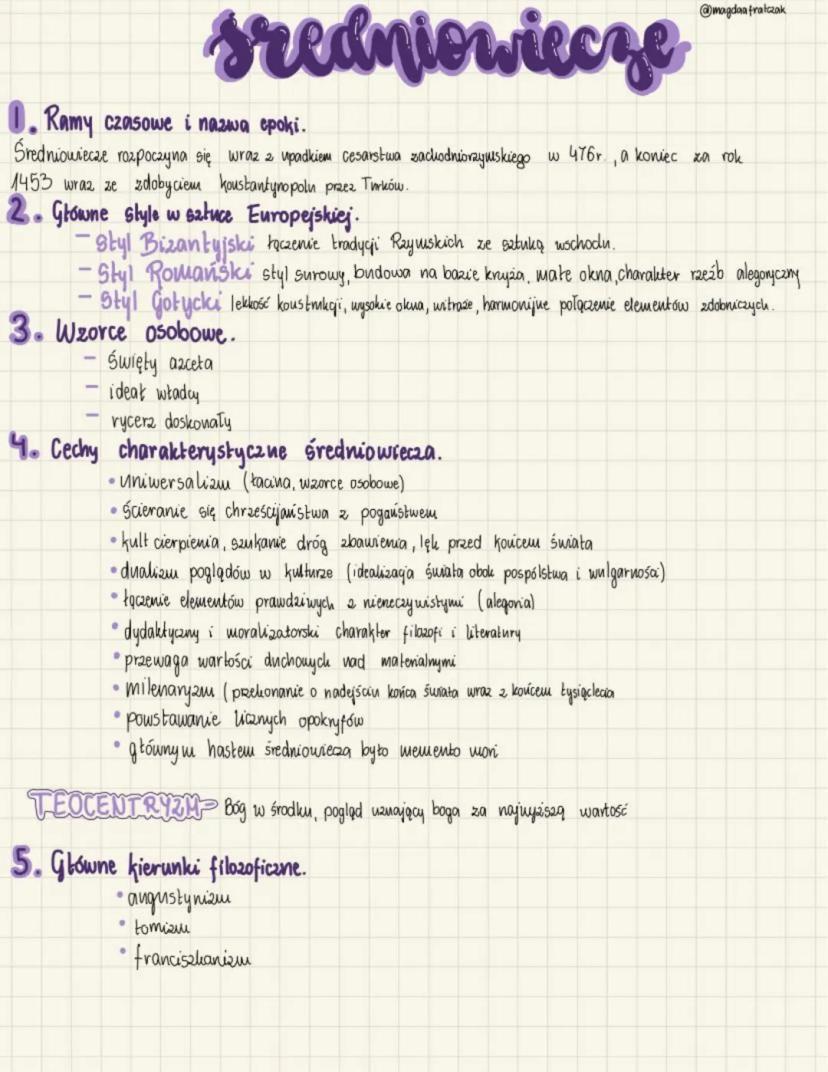 @magdaafratczak
średniowiecze
1. Ramy czasowe i nazwa epoki.
Średniowiecze rozpoczyna się wraz z upadkiem cesarstwa zachodniorzymskiego w 476r., a koniec za rok
1453 wraz ze zdobyciem konstantynopolu przez Turków.
2. Główne style w sztuce Europejskiej.
- Styl Bizantyjski łączenie tradycji Rzymskich ze sztuką wschodu.
- Styl Romański styl surowy, budowa na bazie krzyża, małe okna, charakter rzeźb alegoryczny
- Styl Gotycki lekkość konstrukcji, wysokie okna, witraże, harmonijne połączenie elementów zdobniczych.
3. Wzorce osobowe.
- święty asceta
- ideał władcy
- rycerz doskonały
4. Cechy charakterystyczne średniowiecza.
• uniwersalizm (łacina, wzorce osobowe)
• ścieranie się chrześcijaństwa z pogaństwem
• kult cierpienia, szukanie dróg zbawienia, lęk przed końcem świata
• dualizm poglądów w kulturze (idealizacja świata obok pospólstwa i wulgarności)
• łączenie elementów prawdziwych z nierzeczywistymi (alegoria)
• dydaktyczny i moralizatorski charakter filozofi i literatury
• przewaga wartości duchowych nad materialnymi
• milenaryzm (przekonanie o nadejściu końca świata wraz z końcem tysiąclecia
• powstawanie licznych opokryfów
• głównym hasłem średniowiecza było memento mori
TEOCENTRYZM- Bóg w środku, pogląd uznający boga za najwyższą wartość
5. Główne kierunki filozoficzne.
• augustynizm
• tomizm
• franciszkanizm